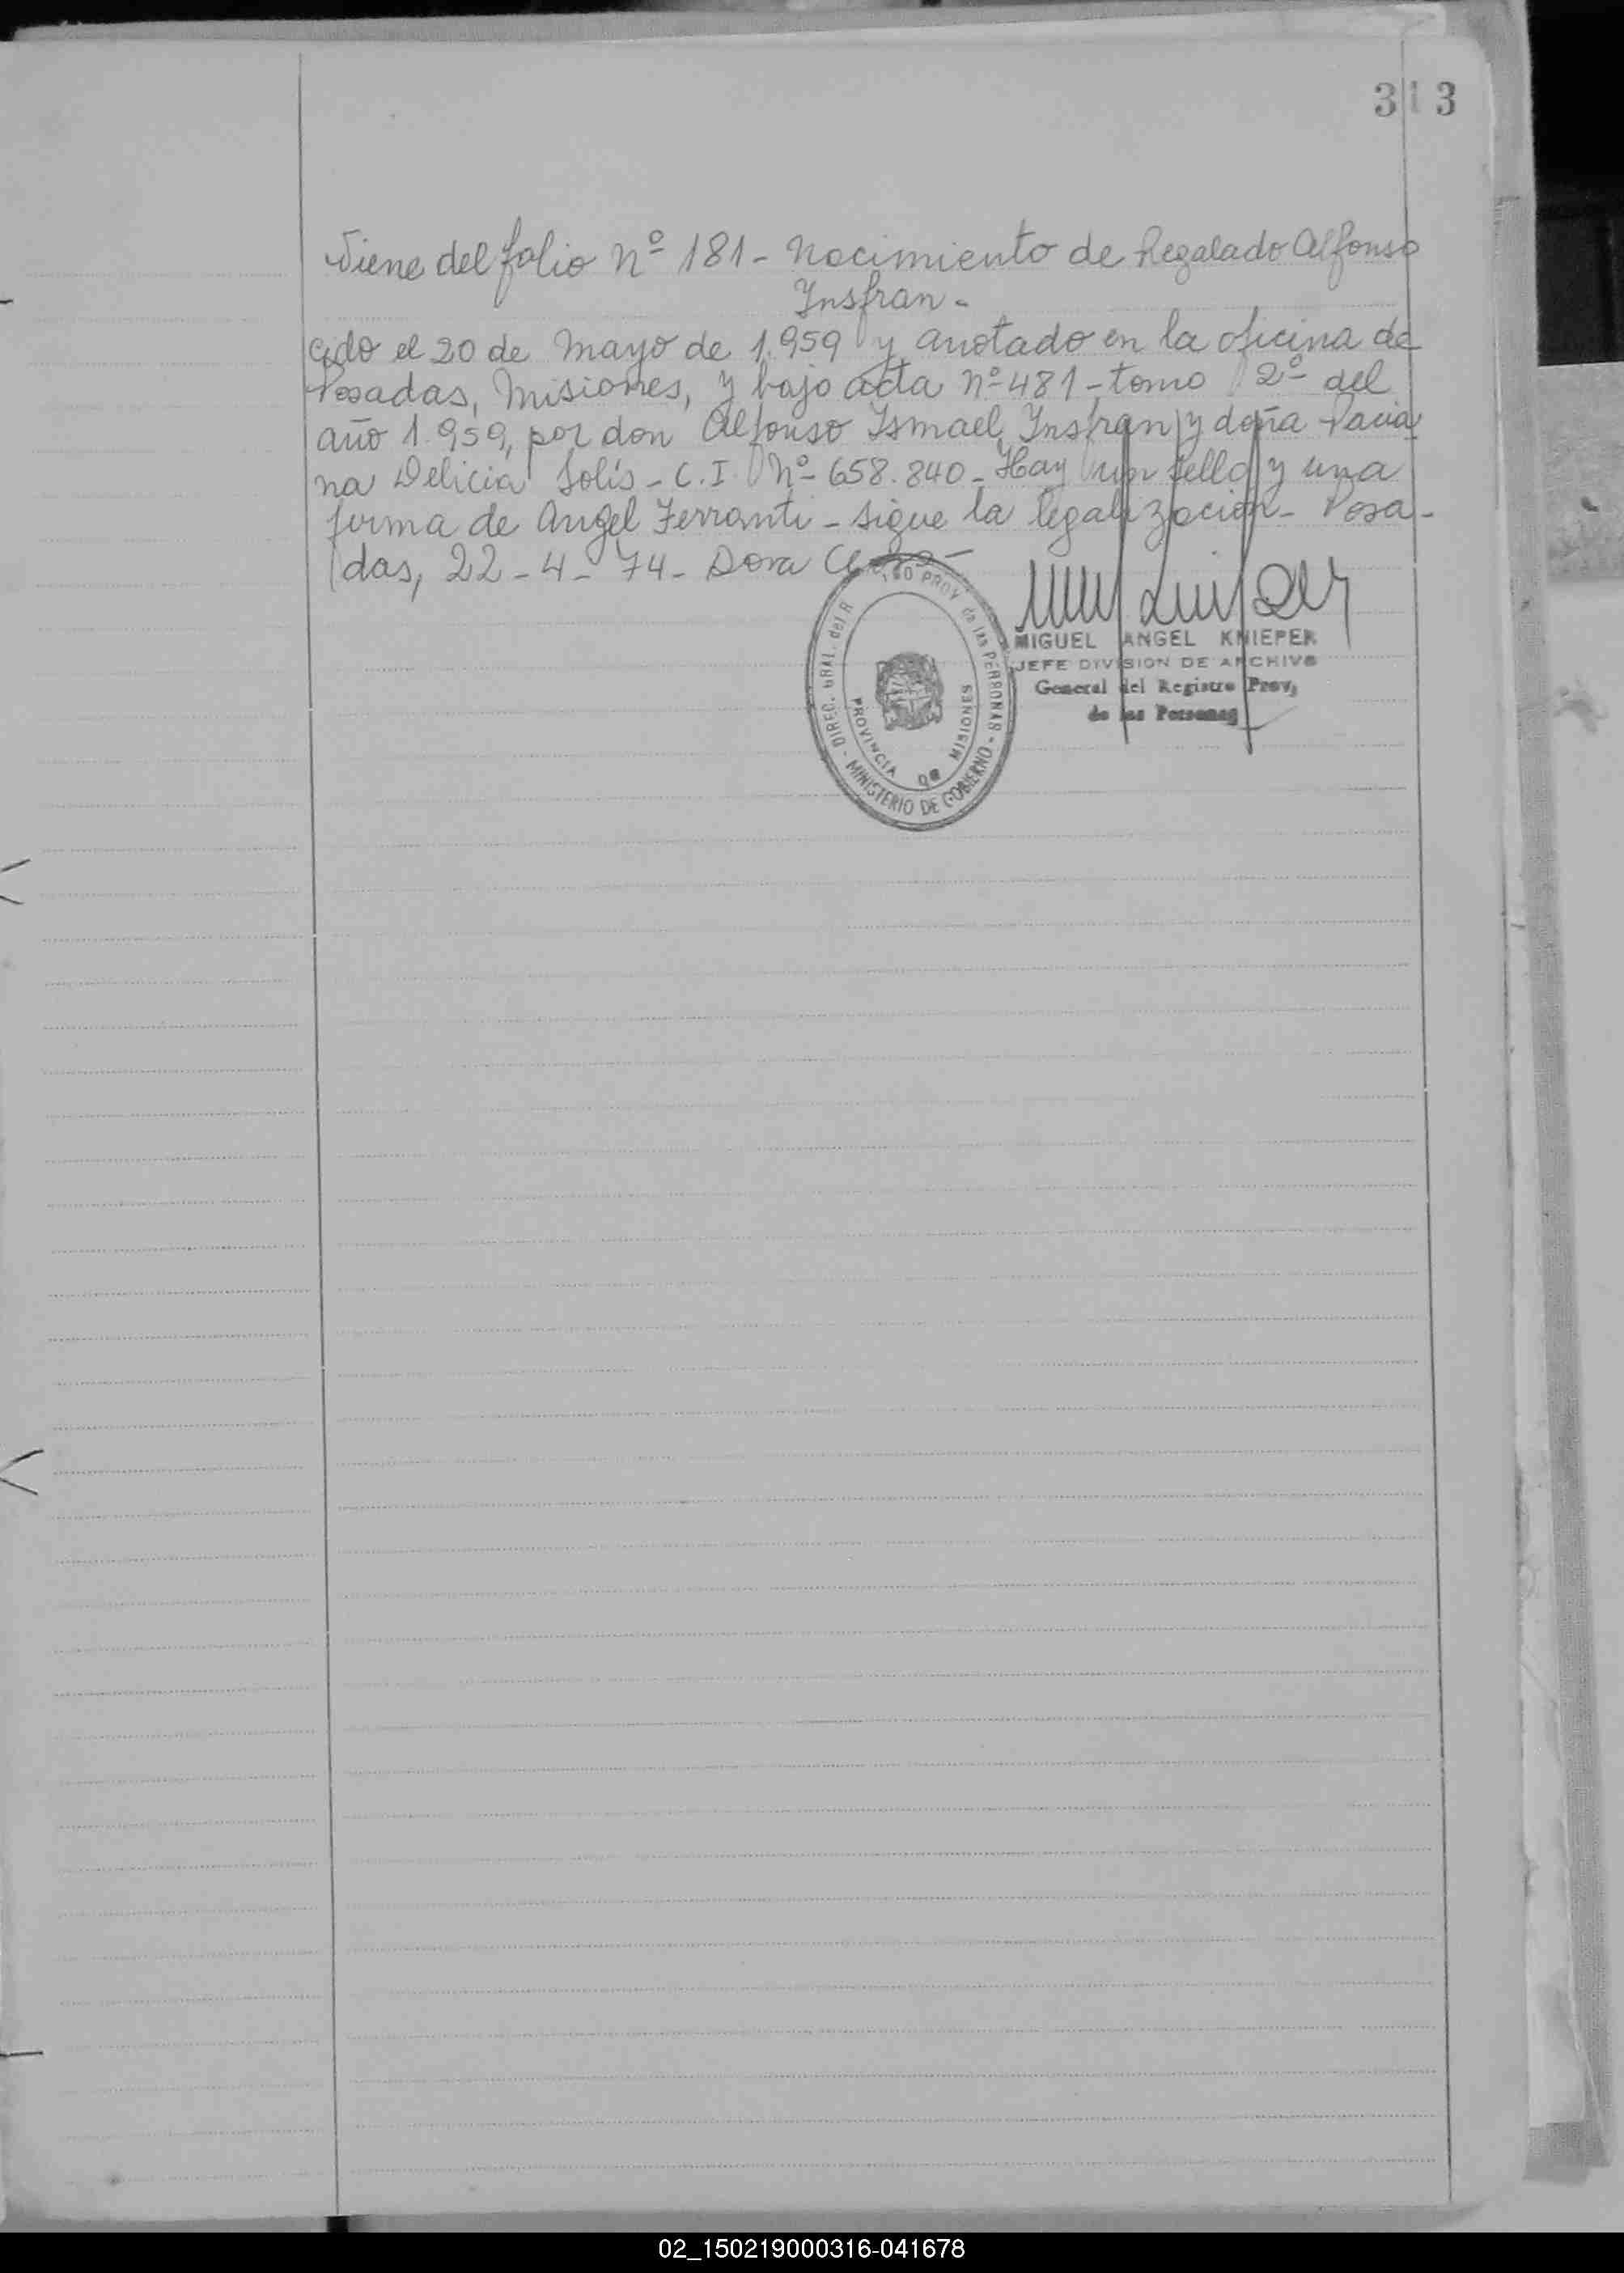 313
Viene del folio Nº 181 - Nacimiento de Regalado Alfonso
Insfran -
cido el 20 de Mayo de 1.959 y anotado en la oficina de
Posadas, Misiones, y bajo acta Nº 481 - tomo 2º del
año 1.959, por don Alfonso Ismael Insfran y doña Pacia
na Delicia Solís - C.I. Nº 658.840 - Hay un sello y una
firma de Angel Ferranti - Sigue la legalizacion - Posa-
das, 22 - 4 - 74 - Dora
MIGUEL ANGEL KNIEPER
JEFE DIVISION DE ARCHIVO
General del Registro Prov,
de las Personas
DIREC. GRAL. del R TRO PROV de las PERSONAS - MINISTERIO DE GOBIERNO -
PROVINCIA DE MISIONES
02_150219000316-041678